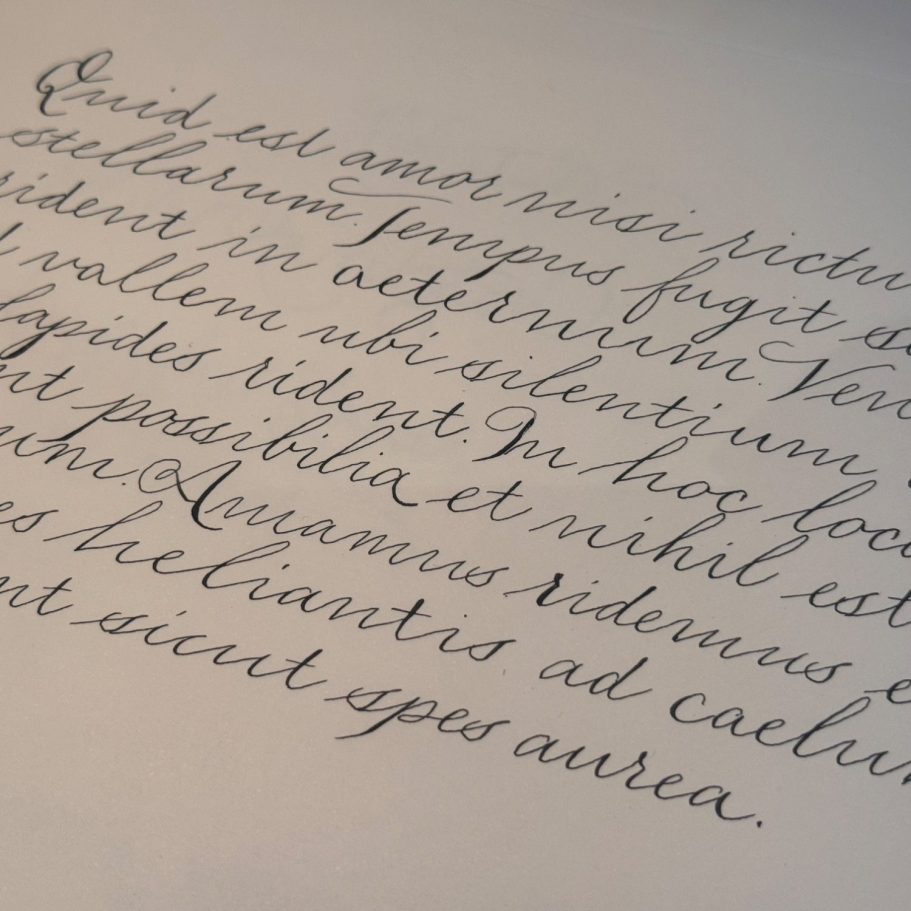 Quid est amor nisi rictu
stellarum. Tempus fugit
rident in aeternum. Ven
vallem ubi silentium
lapides rident. In hoc loco
nt possibilia et nihil est
um. Amamus ridemus e
es heliantis ad caelum
nt sicut spes aurea.